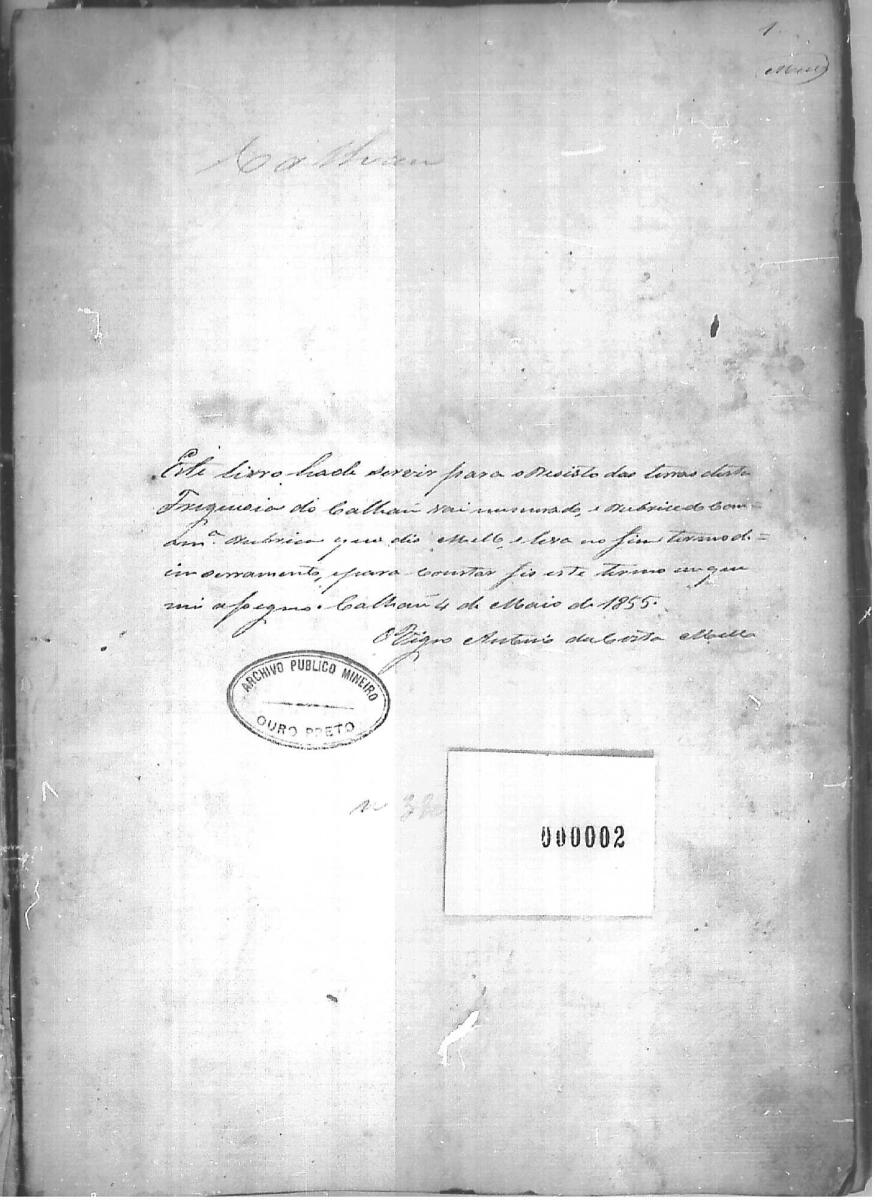 1
Mello
Calhau
Este livro hade servir para o Resisto das terras desta
Friguesia do Calhaú vai numerado, e Rubricado Com
a m.ª Rubrica que dis Mello, e leva no fim termo d=
inserramento, e para Constar fis este termo em que
mi a signo. Calhaú 4 de Maio de 1855.
O Vigro Antonio da Costa Mello
ARCHIVO PUBLICO MINEIRO
OURO PRETO
000002